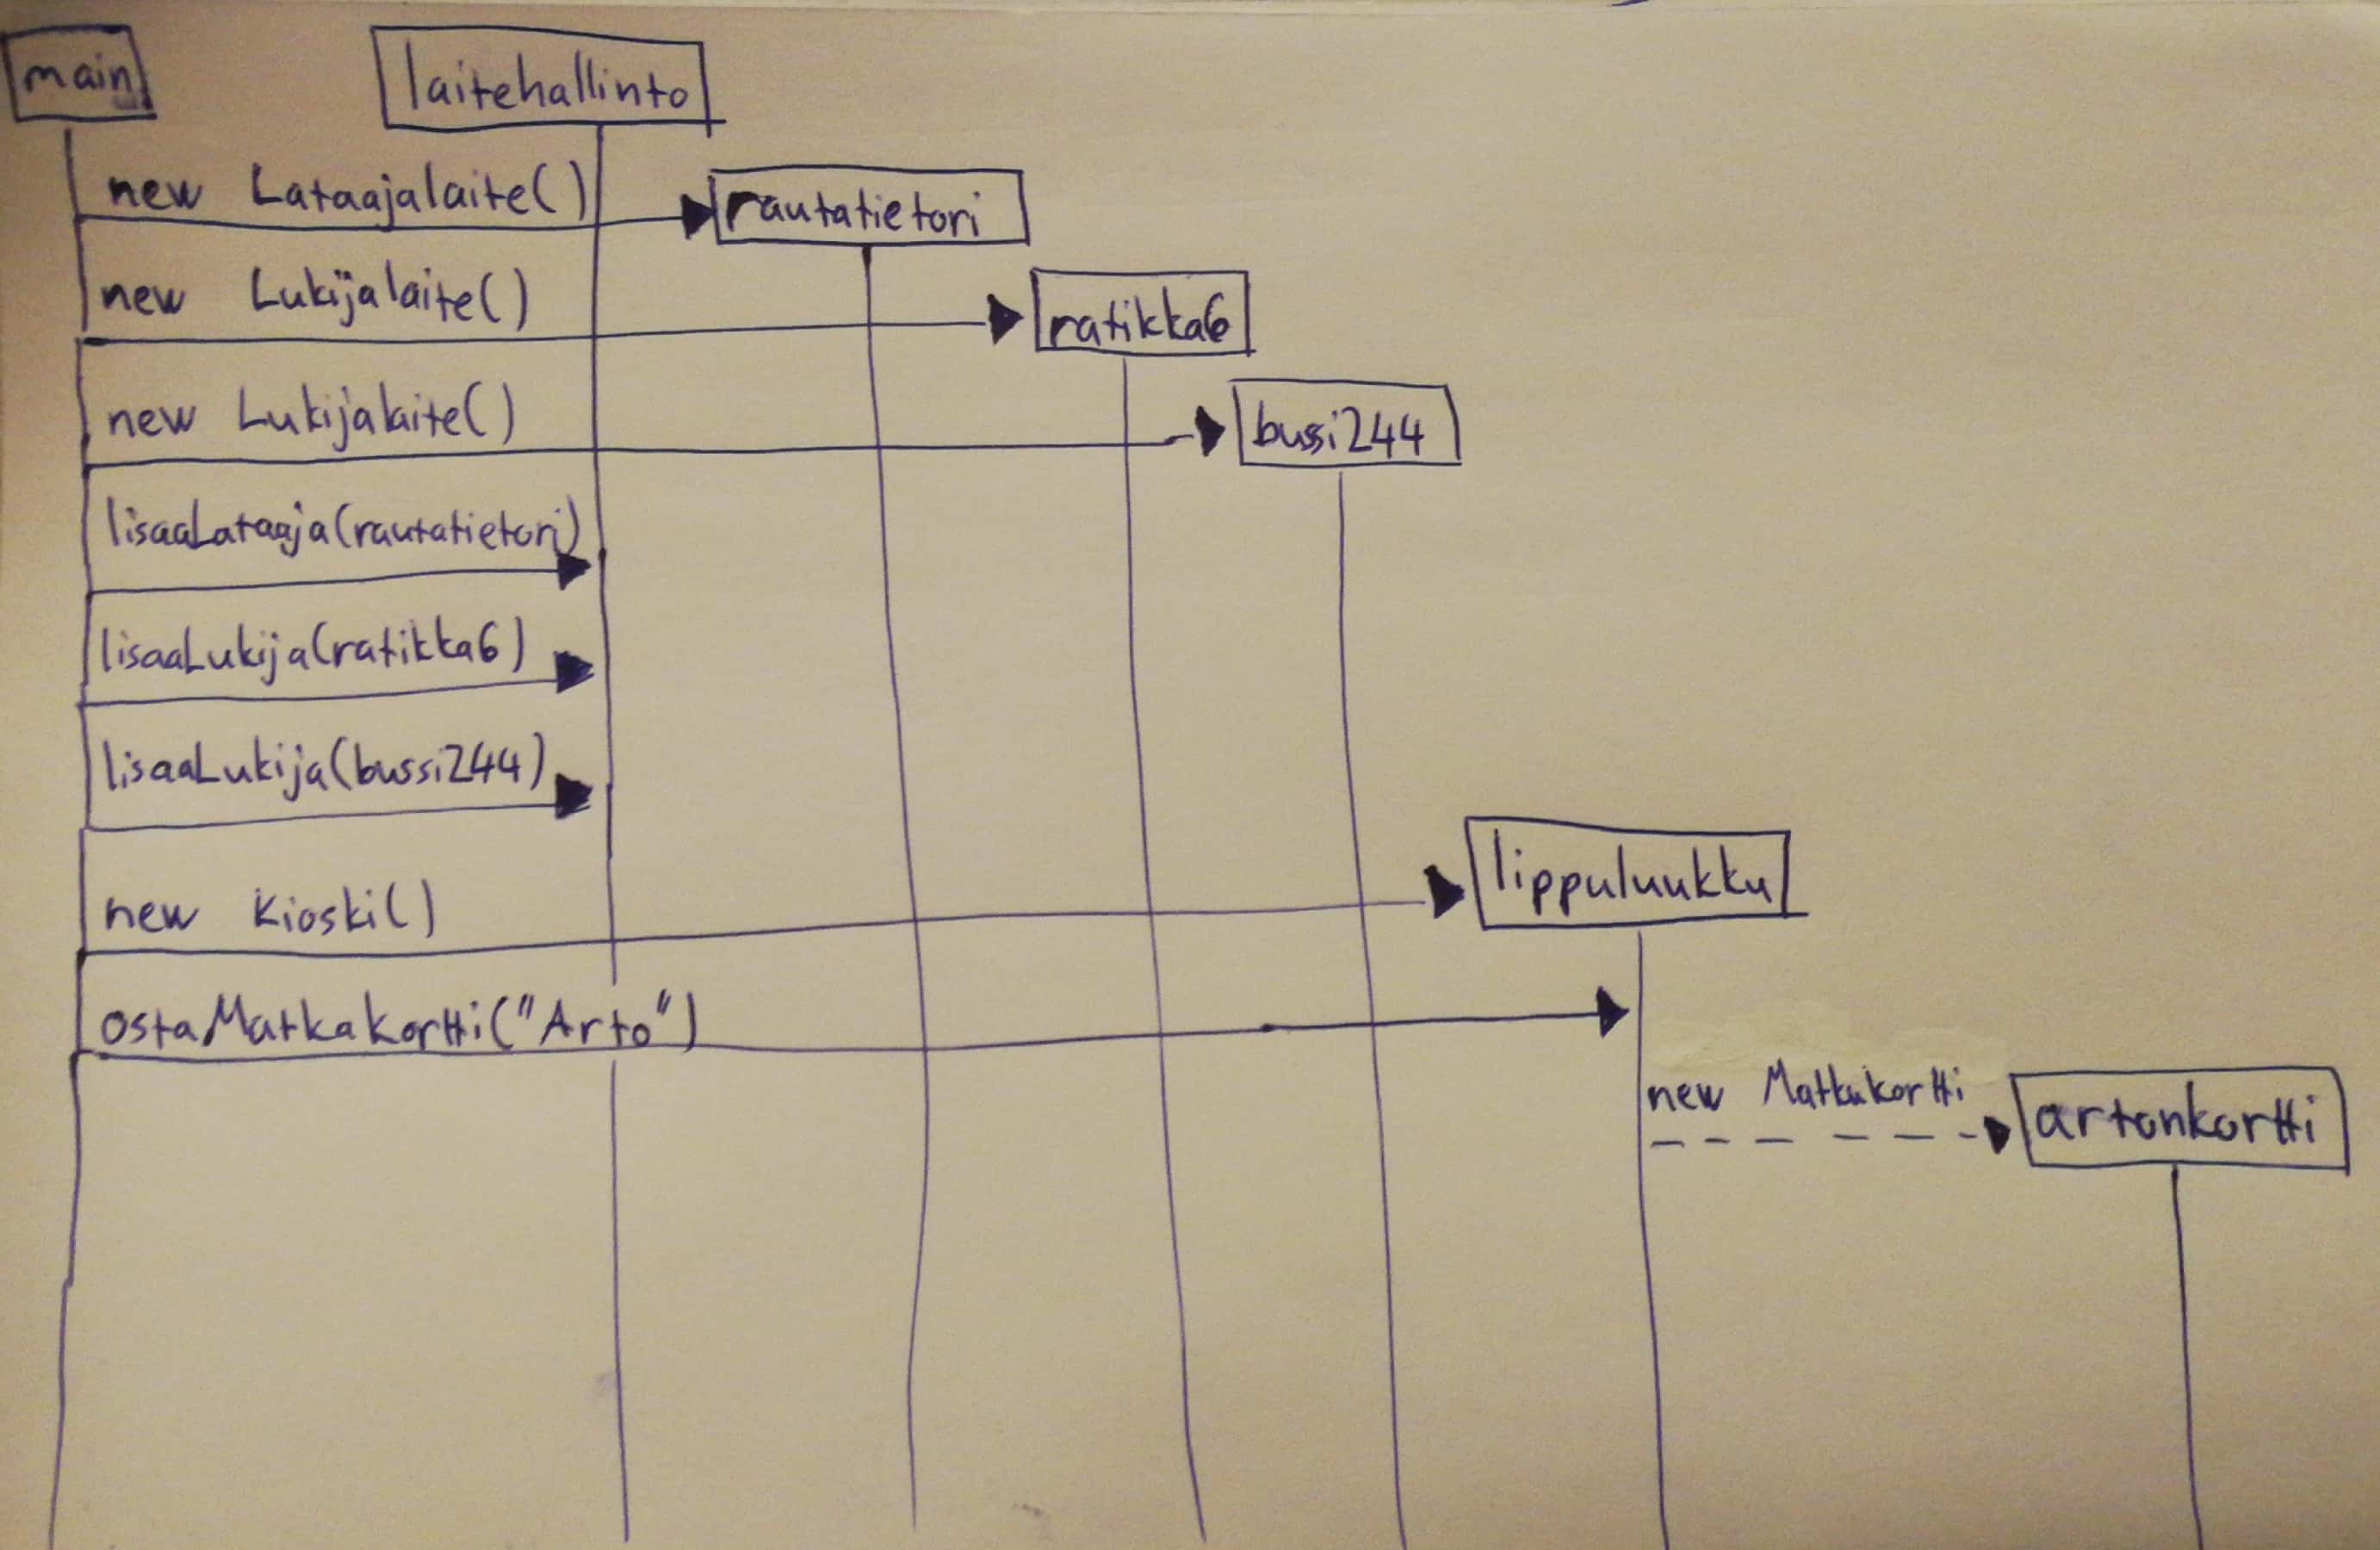 main
laitehallinto
new Lataajalaite()
rautatietori
new Lukijalaite()
ratikka6
new Lukijalaite()
bussi244
lisaaLataaja(rautatietori)
lisaaLukija(ratikka6)
lisaaLukija(bussi244)
new Kioski()
lippuluukku
ostaMatkakortti("Arto")
new Matkakortti
artonkortti